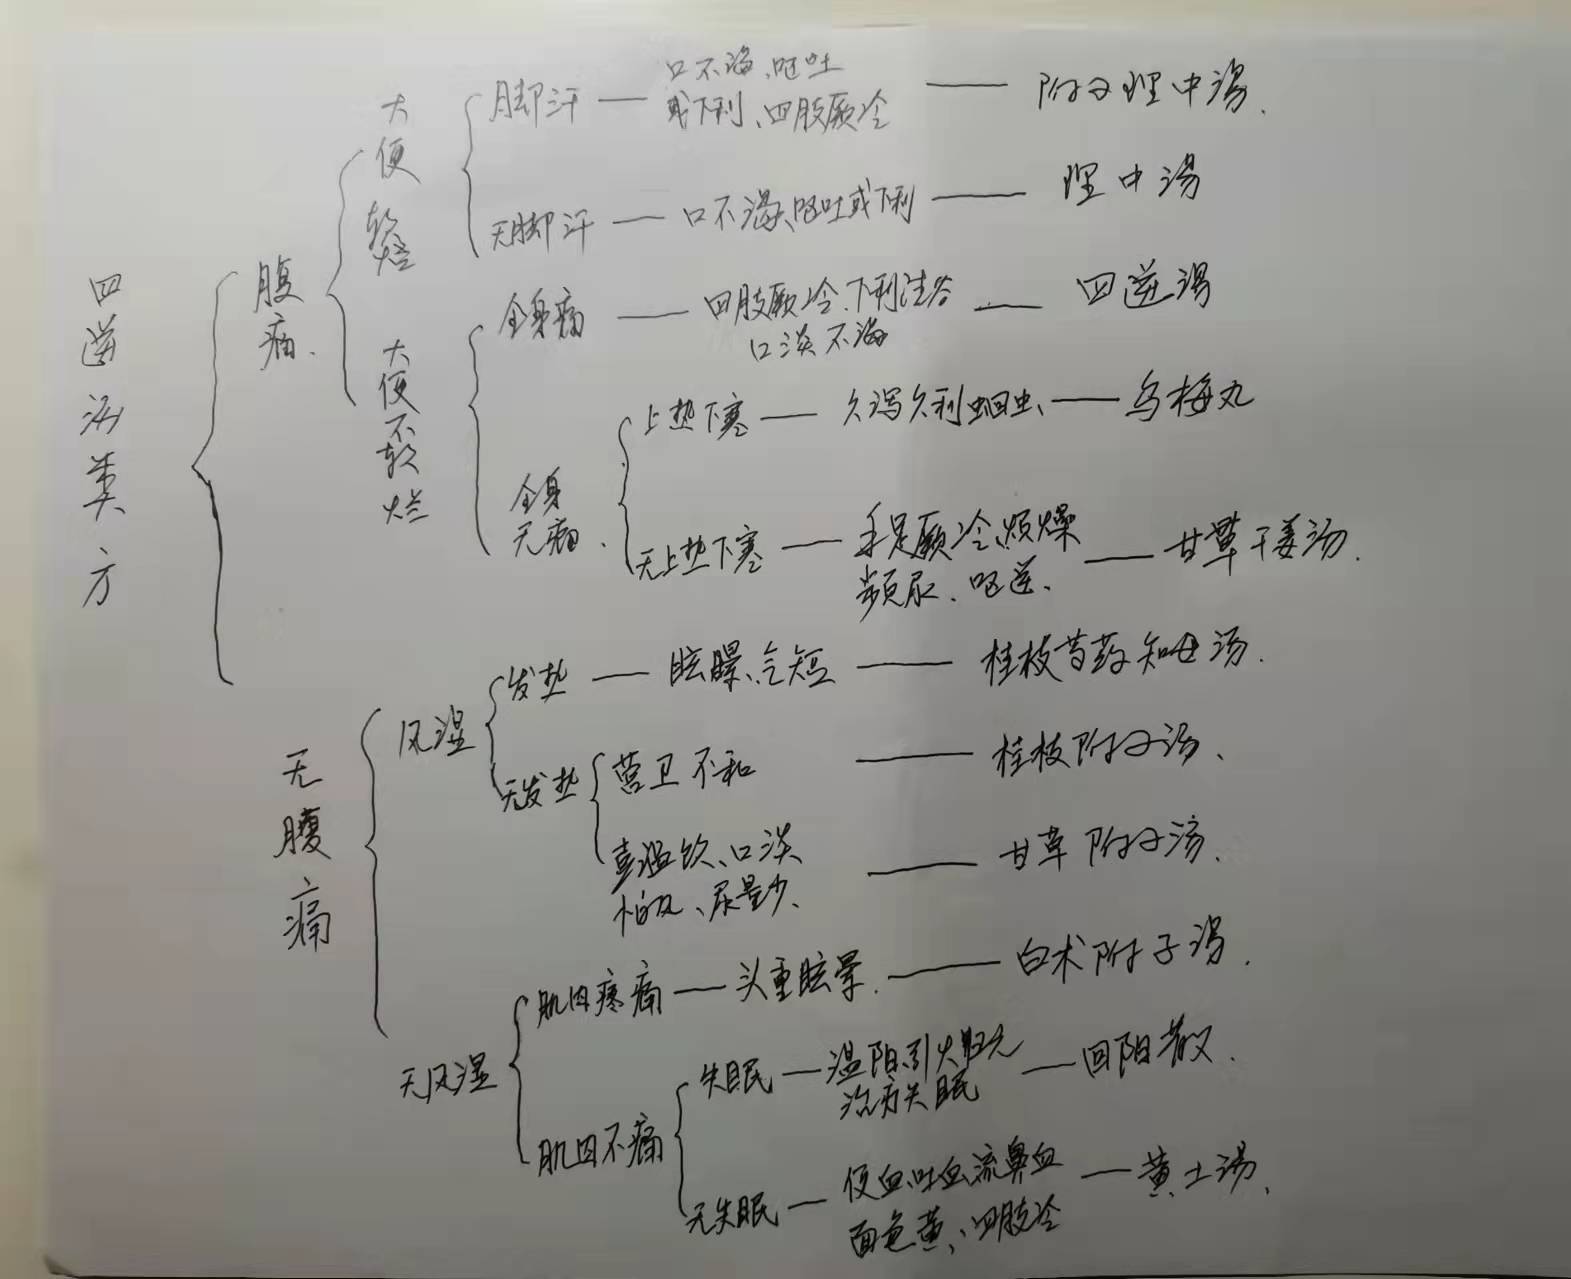 四逆汤类方
腹痛.
大便软烂
脚汗 — 口不渴、呕吐
或下利、四肢厥冷 — 附子理中汤.
无脚汗 — 口不渴、呕吐或下利 — 理中汤
大便不软烂
全身痛 — 四肢厥冷、下利清谷
口淡不渴 — 四逆汤
全身无痛.
上热下寒 — 久泻久利蛔虫、— 乌梅丸
无上热下寒 — 手足厥冷、烦燥
频尿、呕逆、— 甘草干姜汤.
无腹痛
风湿
发热 — 眩晕、气短 — 桂枝芍药知母汤.
无发热
营卫不和 — 桂枝附子汤、
喜温饮、口淡
怕风、尿量少、 — 甘草附子汤.
无风湿
肌肉疼痛 — 头重眩晕. — 白术附子汤.
肌肉不痛
失眠 — 温阳、引火归元
治疗失眠 — 回阳散.
无失眠 — 便血、吐血、流鼻血
面色黄、四肢冷 — 黄土汤、